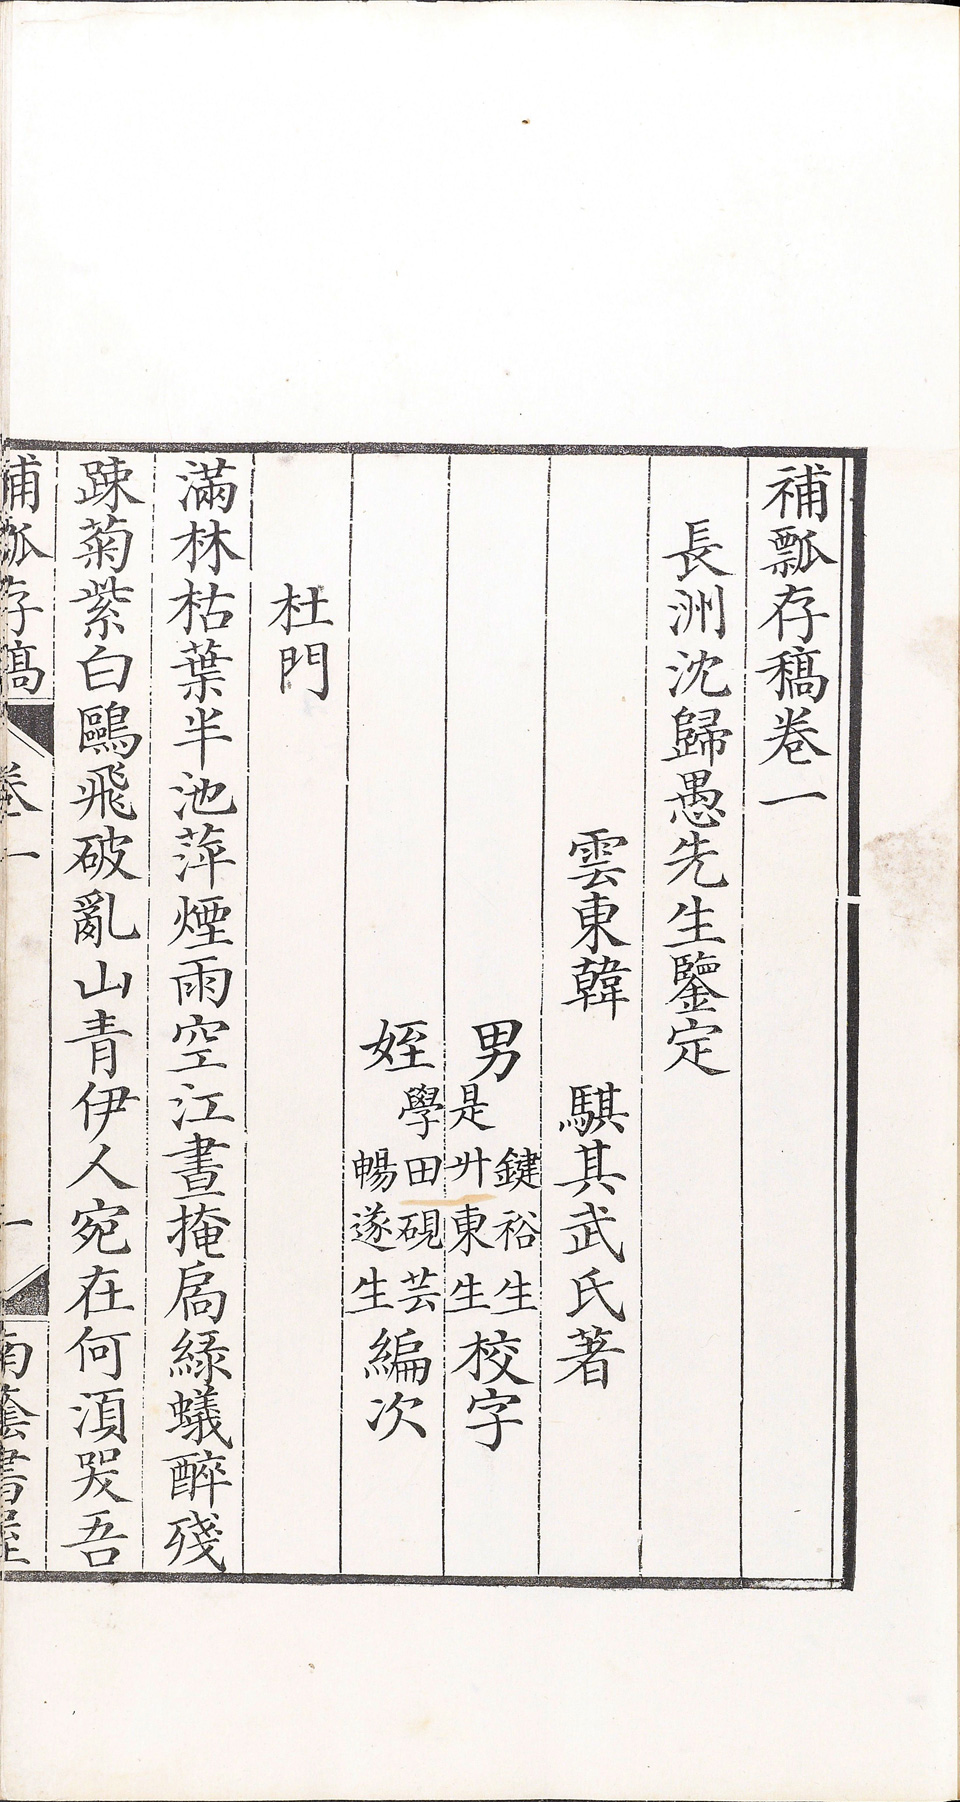 補瓢存稿卷一
長洲沈歸愚先生鑒定
雲東韓　騏其武氏著
男　鍵裕生　是升東生　校字
姪　學田硯芸　暢遂生　編次
杜門
滿林枯葉半池萍煙雨空江晝掩扄綠蟻醉殘
踈菊紫白鷗飛破亂山青伊人宛在何湏哭吾
補瓢存稿　卷一　一　書屋